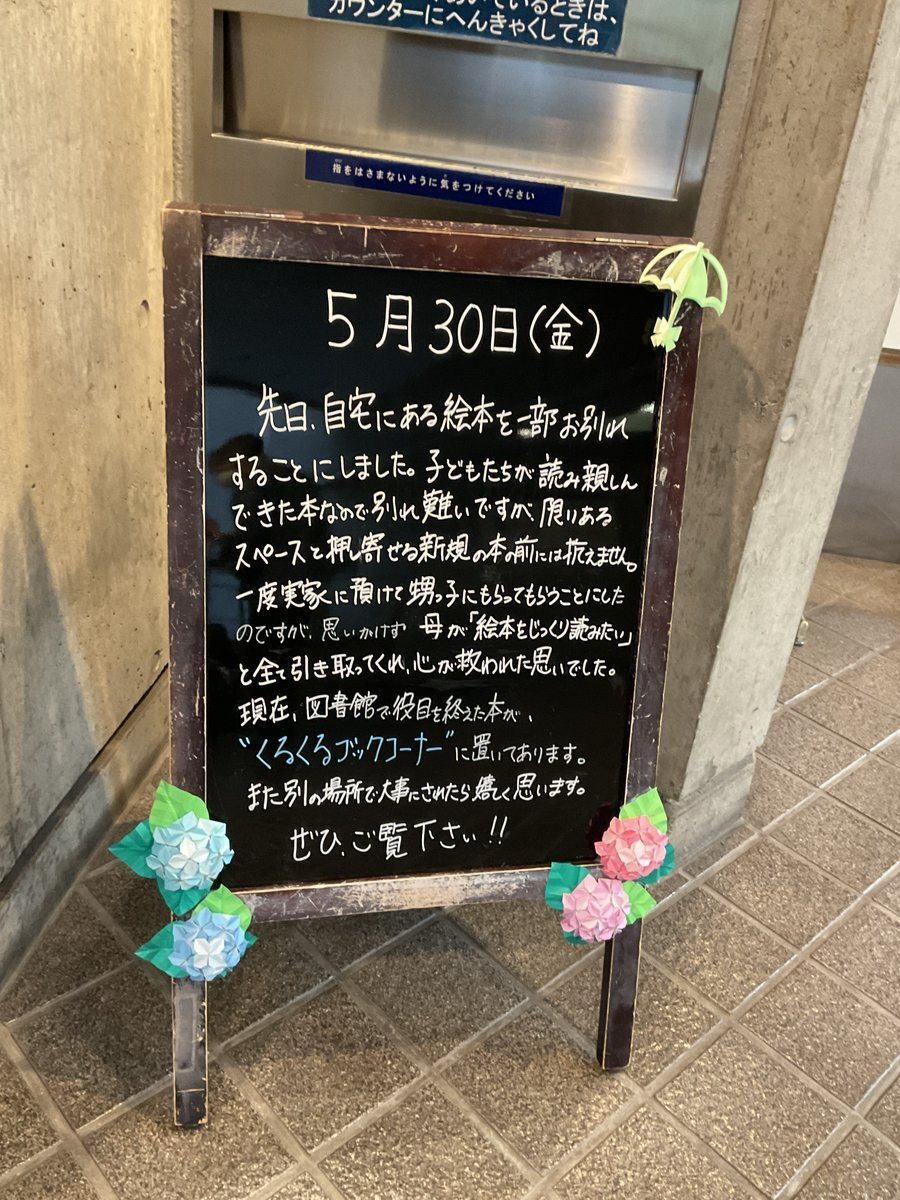 いているときは、
カウンターにへんきゃくしてね
指をはさまないように気をつけてください
5月30日(金)
先日、自宅にある絵本を一部お別れ
することにしました。子どもたちが読み親しん
できた本なので別れ難いですが、限りある
スペースと押し寄せる新規の本の前には抗えません。
一度実家に預けて甥っ子にもらってもらうことにした
のですが、思いかけず母が「絵本をじっくり読みたい」
と全て引き取ってくれ、心が救われた思いでした。
現在、図書館で役目を終えた本が、
"くるくるブックコーナー"に置いてあります。
また別の場所で大事にされたら嬉しく思います。
ぜひ、ご覧下さい!!